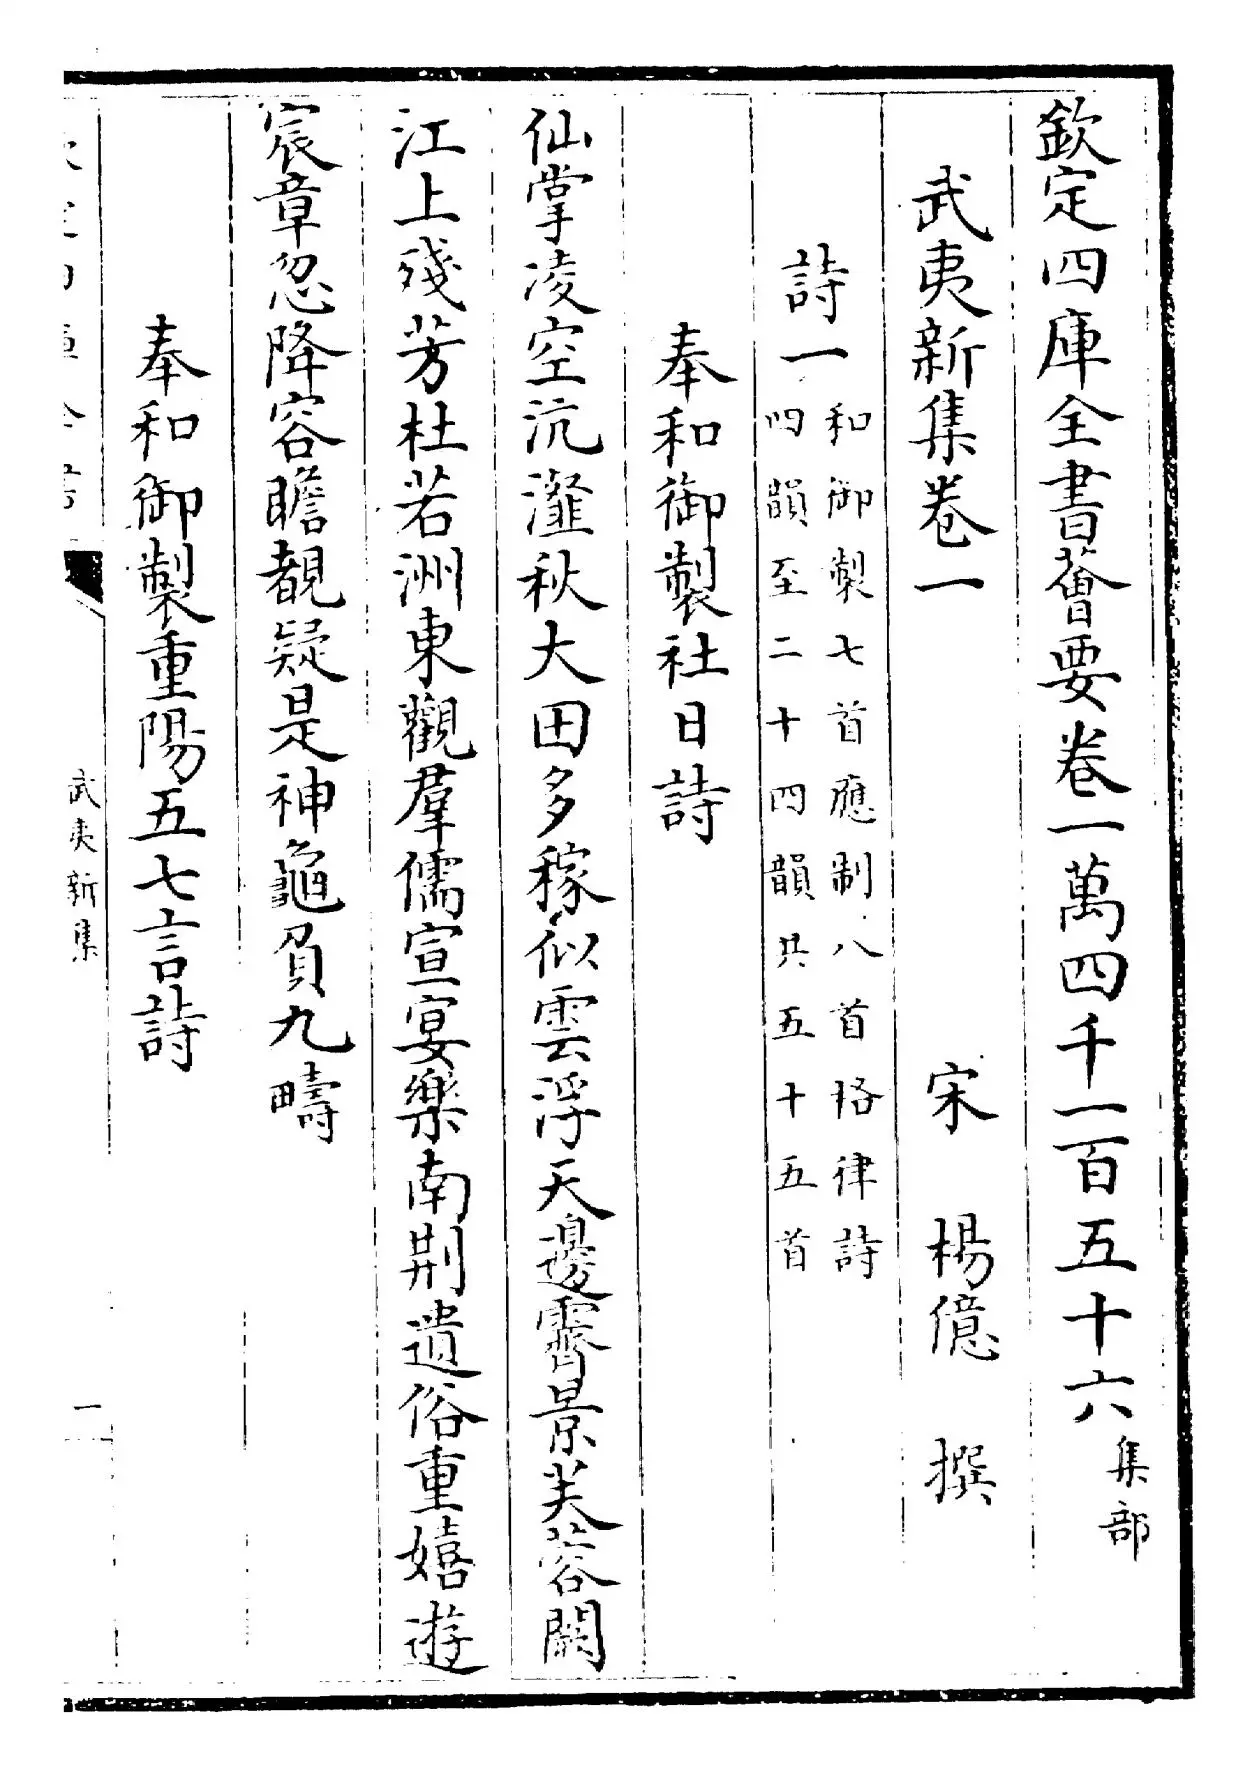 欽定四庫全書薈要卷一萬四千一百五十六集部
武夷新集卷一
宋 楊億 撰
詩一和御製七首應制八首格律詩
四韻至二十四韻共五十五首
奉和御製社日詩
仙掌凌空沆瀣秋大田多稼似雲浮天邊霽景芙蓉闕
江上殘芳杜若洲東觀羣儒宣宴樂南荆遺俗重嬉遊
宸章忽降容瞻覩疑是神龜負九疇
奉和御製重陽五七言詩
武夷新集
一